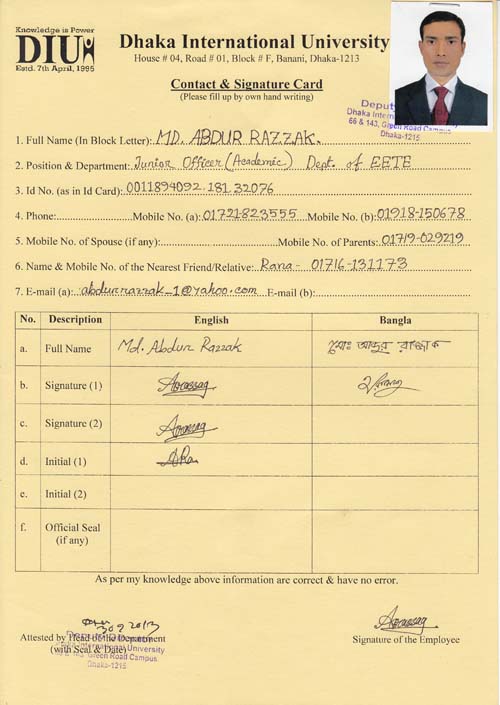 Knowledge is Power
DIU
Estd. 7th April, 1995
Dhaka International University
House # 04, Road # 01, Block # F, Banani, Dhaka-1213
Contact & Signature Card
(Please fill up by own hand writing)
Deputy
Dhaka Intern
66 & 143, Green Road Campus
Dhaka-1215
1. Full Name (In Block Letter): MD. ABDUR RAZZAK.
2. Position & Department: Junior Officer (Academic) Dept. of EETE
3. Id No. (as in Id Card): 0011894092.181.32076
4. Phone: Mobile No. (a): 01721-823555 Mobile No. (b): 01918-150678
5. Mobile No. of Spouse (if any): Mobile No. of Parents: 01719-029219
6. Name & Mobile No. of the Nearest Friend/Relative: Rana- 01716-131173
7. E-mail (a): abdurrazzak_1@yahoo.com E-mail (b):
No. Description English Bangla
a. Full Name Md. Abdur Razzak মোঃ আব্দুর রাজ্জাক
b. Signature (1)
c. Signature (2)
d. Initial (1)
e. Initial (2)
f. Official Seal
(if any)
As per my knowledge above information are correct & have no error.
Attested by Head of the Department
(with Seal & Date)
Deputy Director
Dhaka International University
66 & 143, Green Road Campus
Dhaka-1215
Signature of the Employee